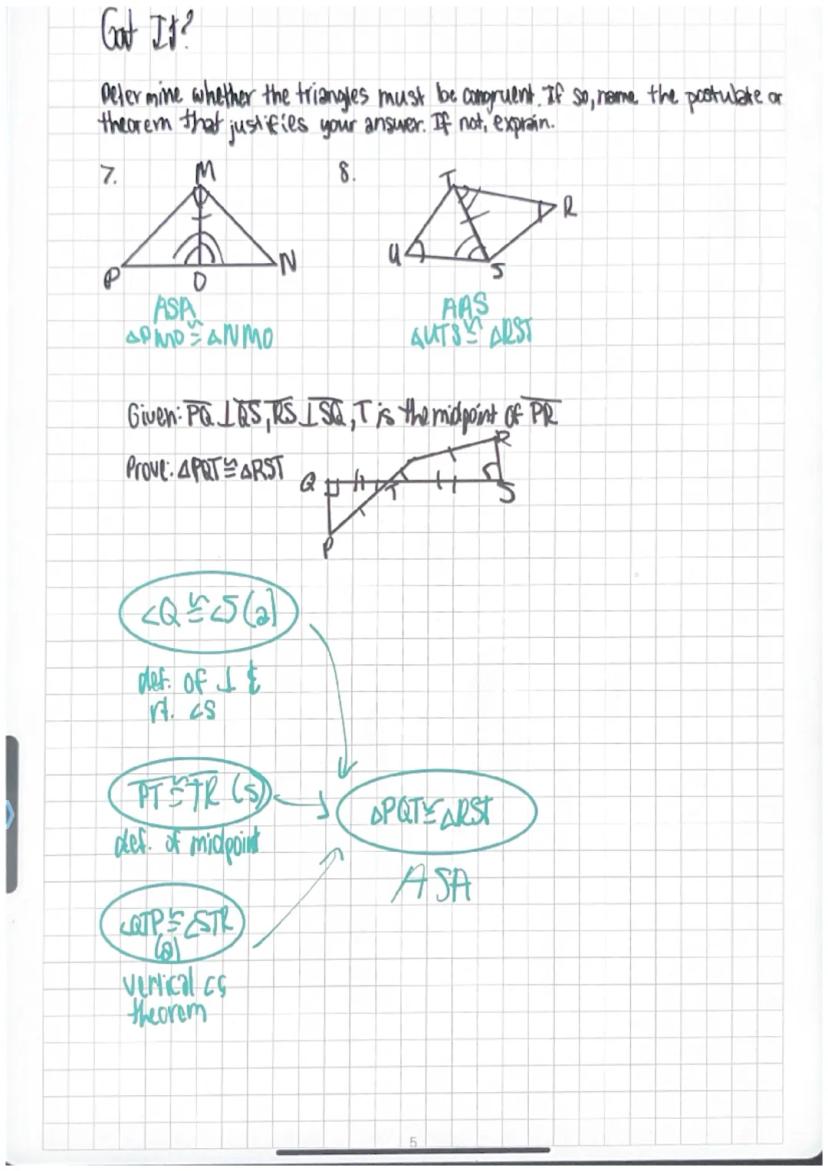 Got It?
Determine whether the triangles must be congruent. If so, name the postulate or
theorem that justifies your answer. If not, explain.
7.
M
P
O
N
ASA
△PMO≅△NMO
8.
T
R
U
S
AAS
△UTS≅△RST
Given: PQ⊥QS, RS⊥SQ, T is the midpoint of PR
Prove: △PQT≅△RST
Q
R
T
S
P
∠Q≅∠S (a)
def. of ⊥ &
rt. ∠s
PT≅TR (s)
def. of midpoint
△PQT≅△RST
ASA
∠QTP≅∠STR
(a)
vertical ∠s
theorem
5